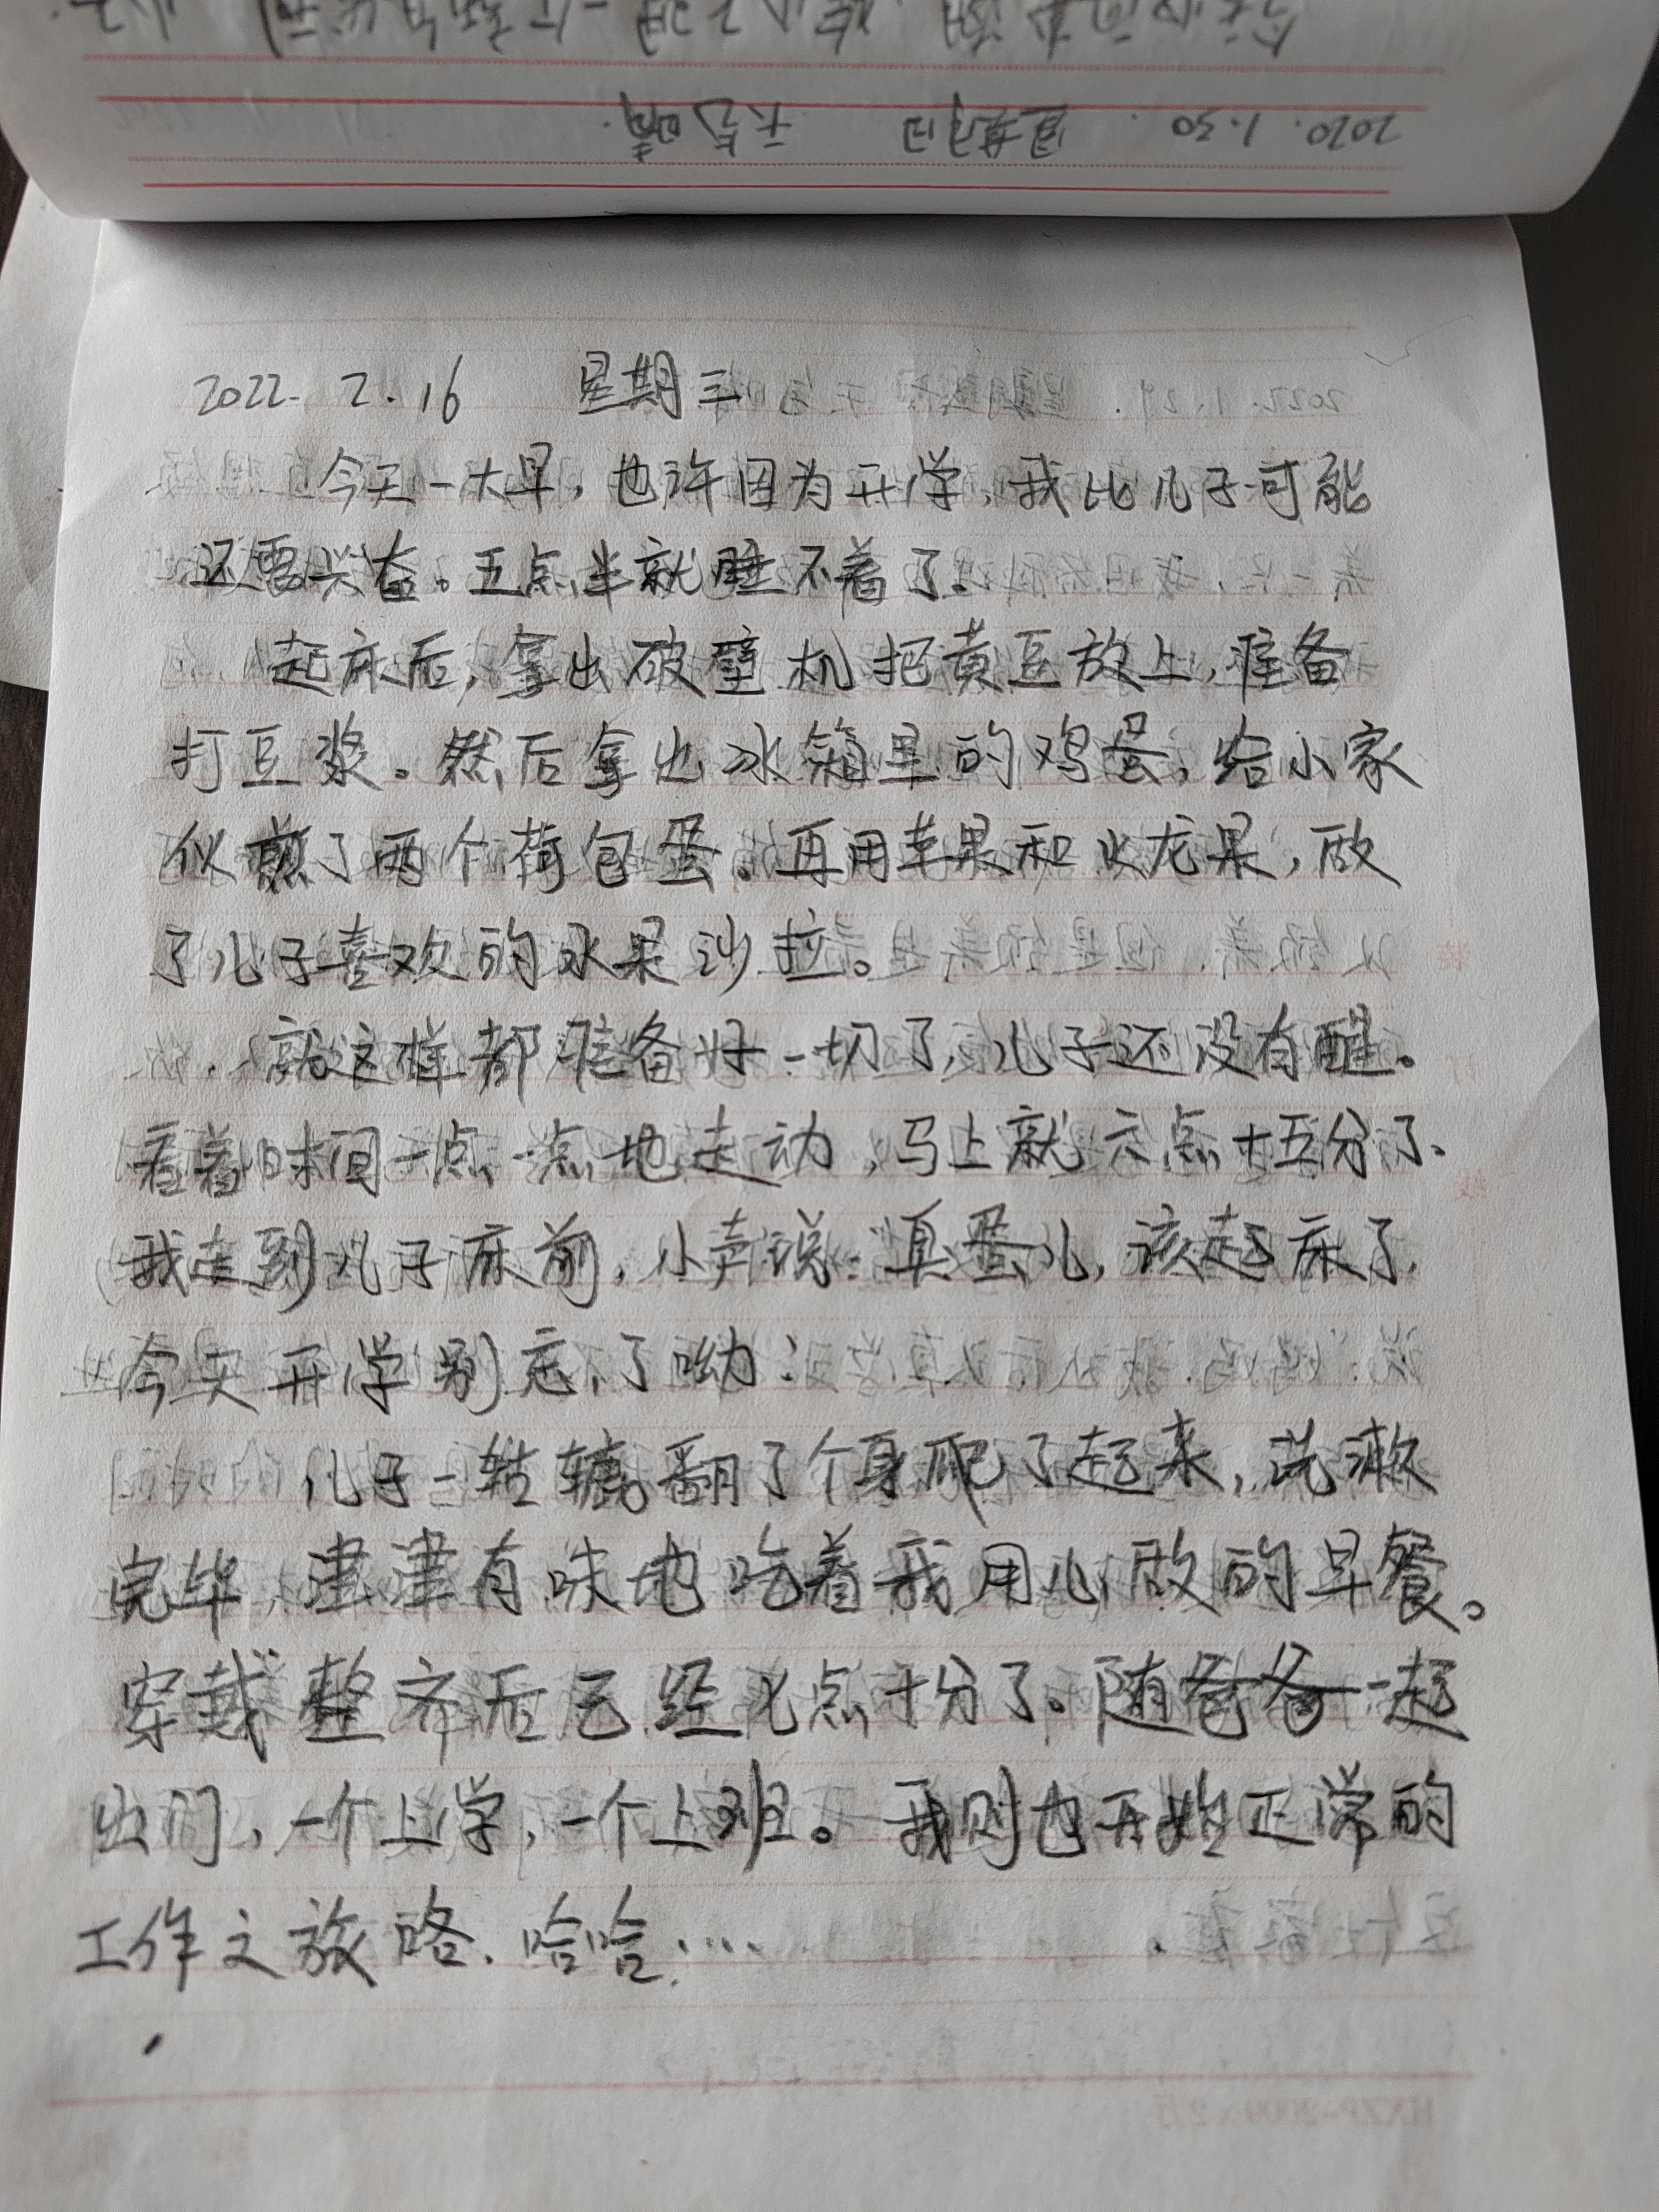 2020. 1.30. 星期日 天气晴.
2022. 2.16 星期三
今天一大早，也许因为开学，我比儿子可能
还要兴奋。五点半就睡不着了。
起床后，拿出破壁机把黄豆放上，准备
打豆浆。然后拿出冰箱里的鸡蛋，给小家
伙煎了两个荷包蛋。再用苹果和火龙果，做
了儿子喜欢的水果沙拉。
就这样都准备好一切了，儿子还没有醒。
看着时间一点一点地走动，马上就六点十五分了、
我走到儿子床前，小声说：臭蛋儿，该起床了，
今天开学别忘了呦！
儿子一轱辘翻了个身爬了起来，洗漱
完毕，津津有味地吃着我用心做的早餐。
穿戴整齐后已经七点十分了。随爸爸一起
出门，一个上学，一个上班。我则也开始正常的
工作之旅咯、哈哈.....